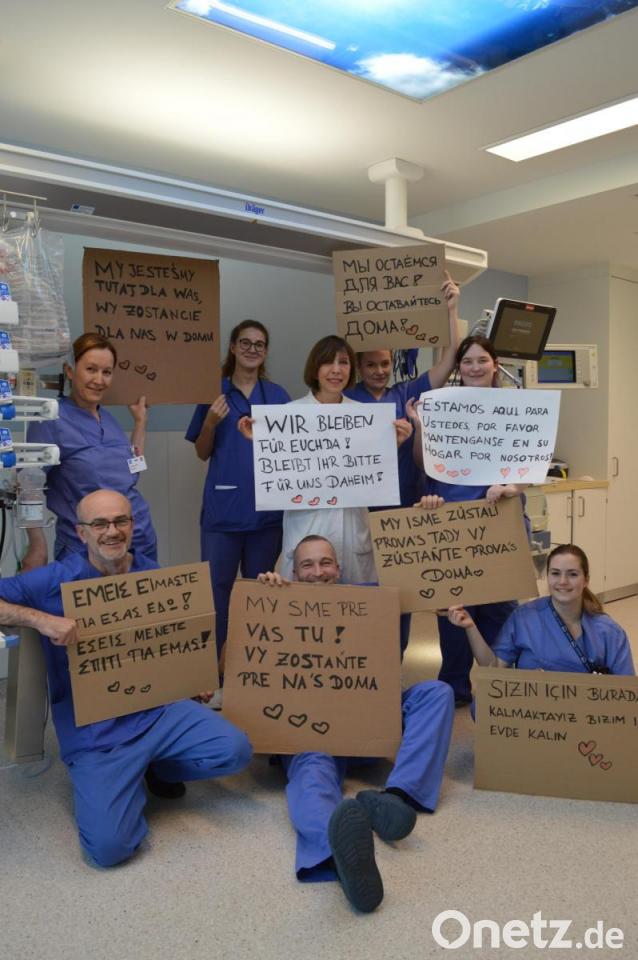 Dräger
MY JESTEŚMY
TUTAJ DLA WAS,
WY ZOSTANCIE
DLA NAS W DOMU
МЫ ОСТАЁМСЯ
ДЛЯ ВАС!
ВЫ ОСТАВАЙТЕСЬ
ДОМА!
WIR BLEIBEN
FÜR EUCH DA!
BLEIBT IHR BITTE
FÜR UNS DAHEIM!
ESTAMOS AQUÍ PARA
USTEDES, POR FAVOR
MANTENGANSE EN SU
HOGAR POR NOSOTROS!
MY ISME ZŮSTALI
PROVA'S TADY VY
ZŮSTAŇTE PROVA'S
DOMA
ΕΜΕΙΣ ΕΙΜΑΣΤΕ
ΓΙΑ ΕΣΑΣ ΕΔΩ!
ΕΣΕΙΣ ΜΕΝΕΤΕ
ΣΠΙΤΙ ΓΙΑ ΕΜΑΣ!
MY SME PRE
VAS TU!
VY ZOSTAŇTE
PRE NA'S DOMA
SIZIN IÇIN BURADA
KALMAKTAYIZ BIZIM I
EVDE KALIN
Onetz.de